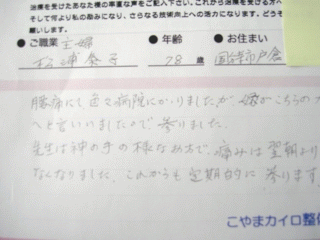 治療を受けたあなた様の率直な声をご記入下さい。これから治療を受ける方へ
そして何より私の励みになり、さらなる技術向上への活力になります。どうぞ
願い
●ご職業 主婦 ●年齢 ●お住まい
松浦 28歳 国分寺市戸倉
腰痛にて色々病院にかかりましたが 嫁がこちらの方
へと言いましたので参りました。
先生は神の手の様なお方で、痛みは翌朝より
なくなりました。これからも定期的に参ります
こやまカイロ整体